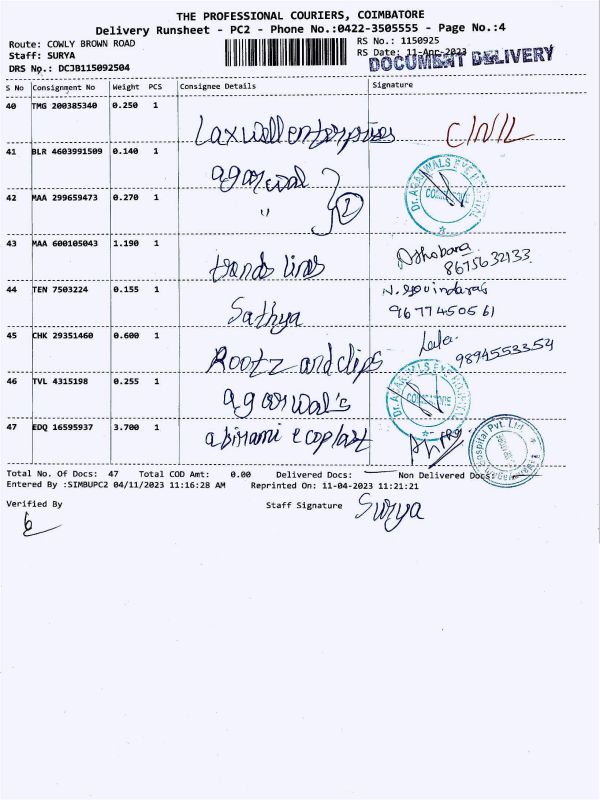 THE PROFESSIONAL COURIERS, COIMBATORE
Delivery Runsheet - PC2 - Phone No.:0422-3505555 - Page No.:4
Route: COWLY BROWN ROAD RS No.: 1150925
Staff: SURYA RS Date: 11-Apr-2023
DOCUMENT DELIVERY
DRS No.: DCJB115092504
S No Consignment No Weight PCS Consignee Details Signature
40 TMG 200385340 0.250 1 Laxwall enterprises
41 BLR 4603991509 0.140 1 agarwal
Dr. AGARWALS EYE HOSPITAL
COIMBATORE
42 MAA 299659473 0.270 1 " 2
43 MAA 600105043 1.190 1 trends lines
8675632133
44 TEN 7503224 0.155 1 Sathya N. Govindaraj
9677450561
45 CHK 29351460 0.600 1 Rootz and clips Lala
9894553354
46 TVL 4315198 0.255 1 agarwal's
Dr. AGARWALS EYE HOSPITAL
COIMBATORE
47 EDQ 16595937 3.700 1 abirami ecoplast
Hospital Pvt. Ltd
Total No. Of Docs: 47 Total COD Amt: 0.00 Delivered Docs: Non Delivered Docs:
Entered By :SIMBUPC2 04/11/2023 11:16:28 AM Reprinted On: 11-04-2023 11:21:21
Verified By Staff Signature Surya